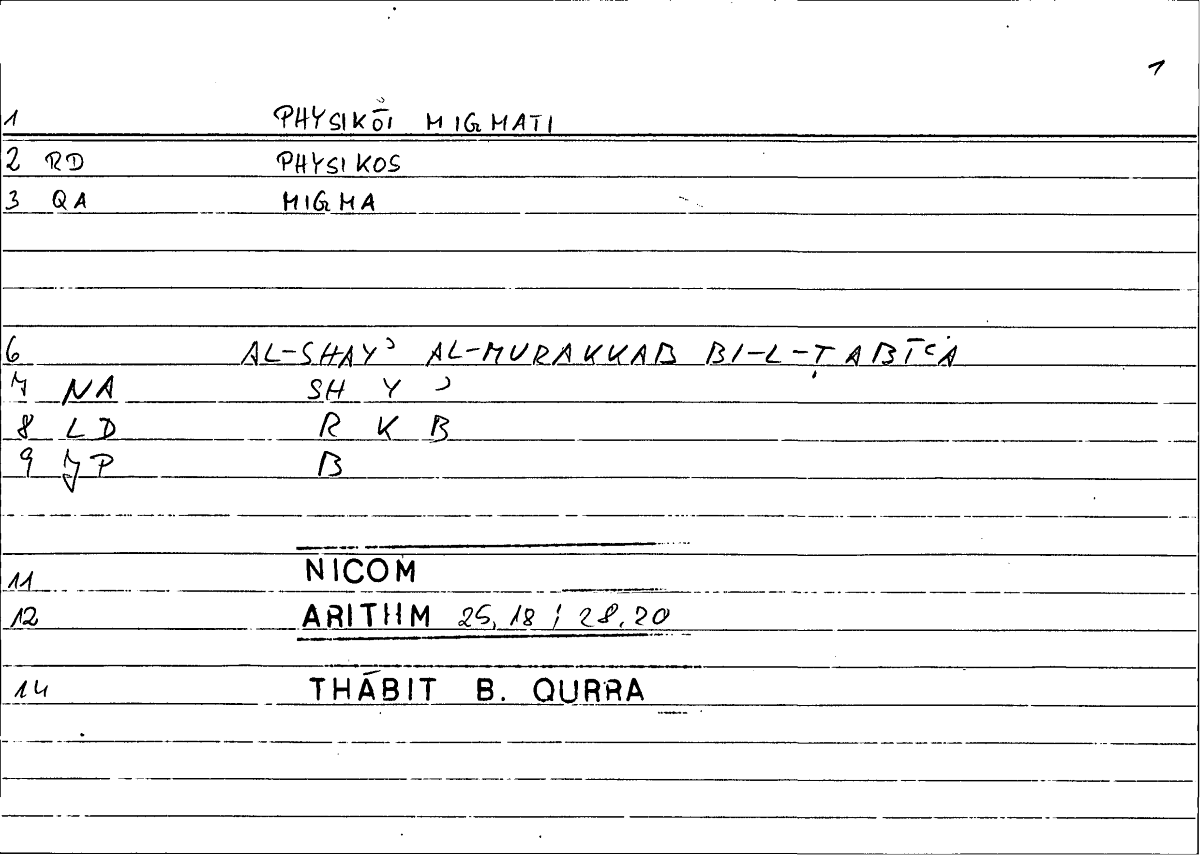 1
1 PHYSIKŌI MIGMATI
2 RD PHYSIKOS
3 QA MIGMA
6 AL-SHAYʾ AL-MURAKKAB BI-L-ṬABĪʿA
7 NA SH Y ʾ
8 LD R K B
9 JP B
11 NICOM
12 ARITHM 25,18 ; 28,20
14 THĀBIT B. QURRA